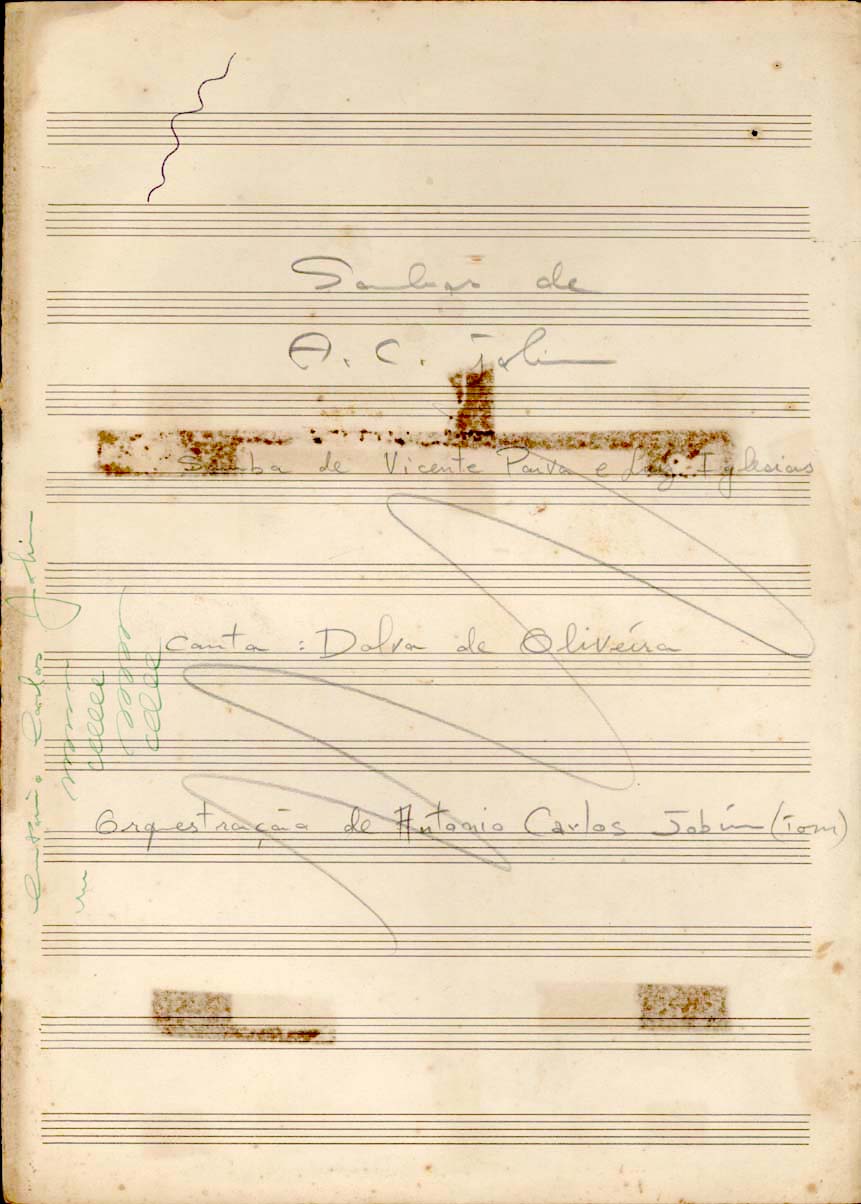 Sambas de
A. C. Jobim
Samba de Vicente Paiva e Luiz Iglesias
Canta : Dalva de Oliveira
Orquestração de Antonio Carlos Jobim (Tom)
Antonio Carlos Jobim